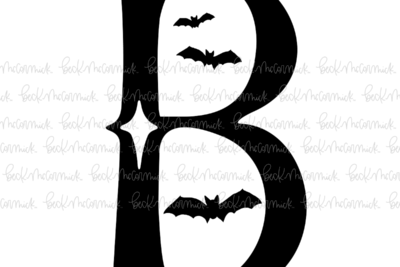 B
beck McCormick beck McCormick beck McCormick beck McCormick
beck McCormick beck McCormick beck McCormick beck McCormick
beck McCormick beck McCormick beck McCormick beck McCormick
beck McCormick beck McCormick beck McCormick beck McCormick
beck McCormick beck McCormick beck McCormick beck McCormick
beck McCormick beck McCormick beck McCormick beck McCormick